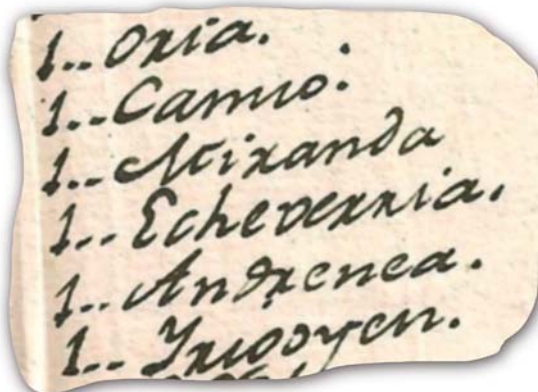 1.. Oria.
1.. Camio.
1.. Miranda
1.. Echeverria.
1.. Andrenea.
1.. Yrigoyen.